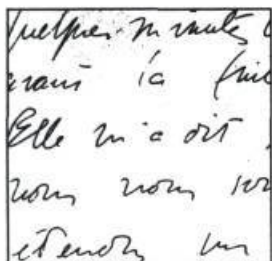 quelques minutes
avant la fin
Elle m'a dit
nous nous
étendons un